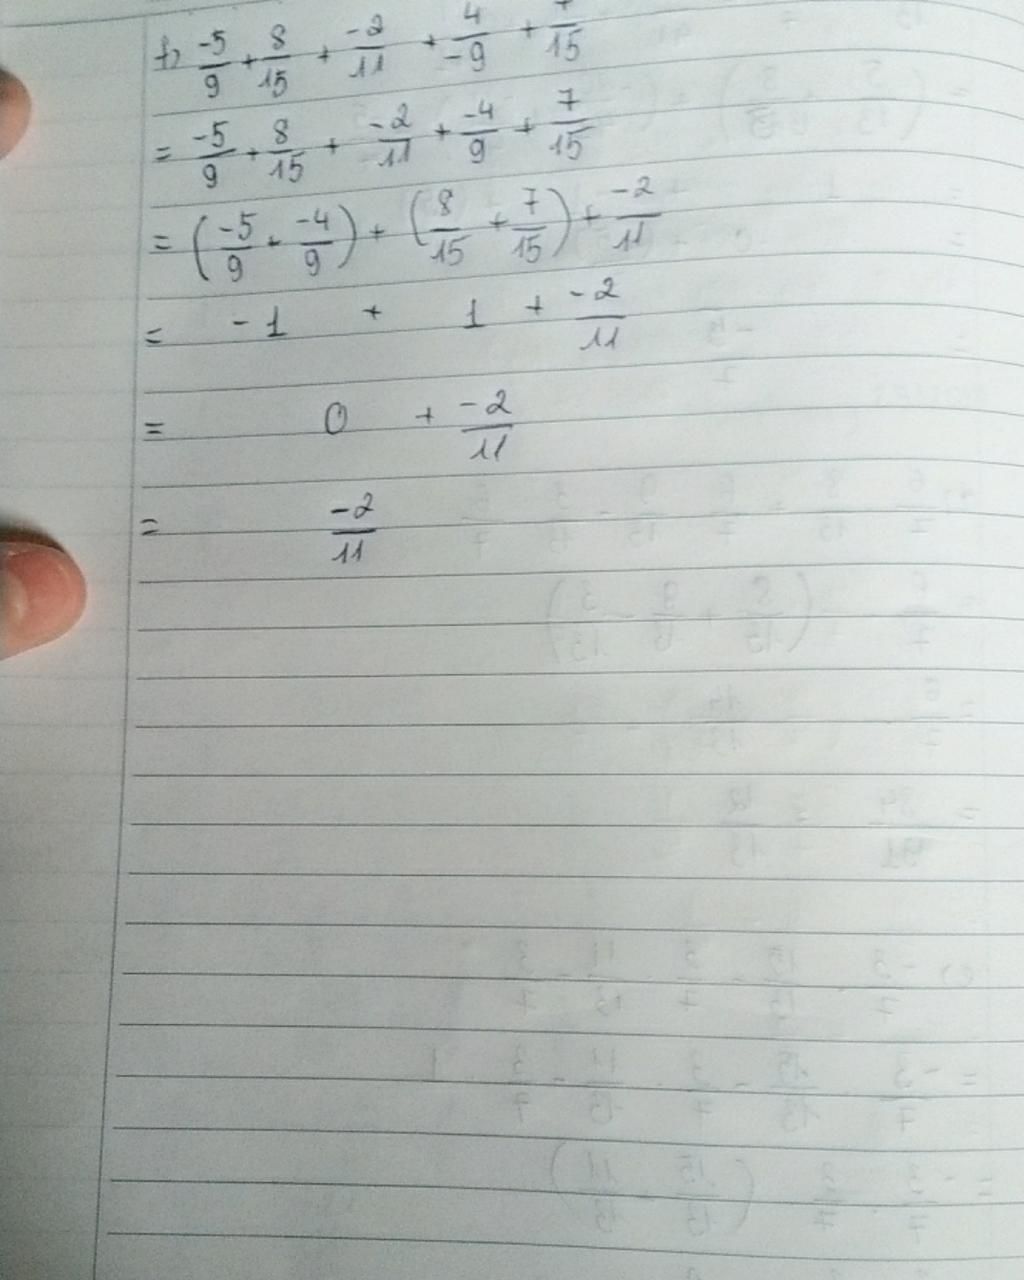 f) -5/9 + 8/15 + -2/11 + 4/-9 + 7/15
= -5/9 + 8/15 + -2/11 + -4/9 + 7/15
= (-5/9 + -4/9) + (8/15 + 7/15) + -2/11
= -1 + 1 + -2/11
= 0 + -2/11
= -2/11